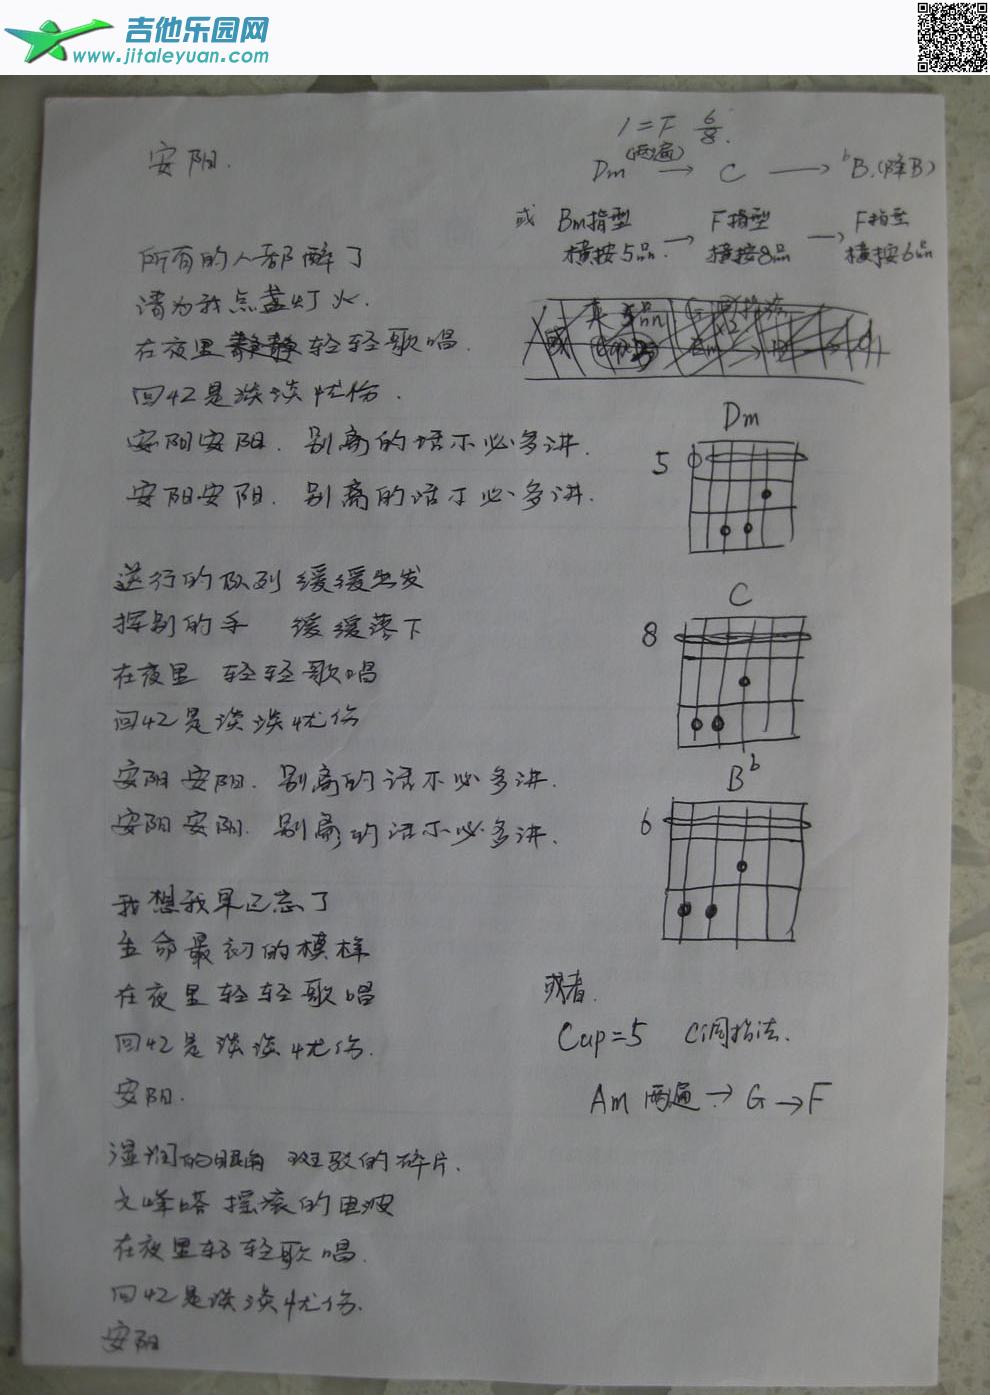 吉他乐园网
www.jitaleyuan.com
安阳.
1=F 6/8.
(两遍)
Dm → C → ᵇB.(降B)
或 Bm指型 → F指型 → F指型
横按5品. 横按8品 横按6品
所有的人都醉了
请为我点盏灯火.
在夜里静静轻轻歌唱.
回忆是淡淡忧伤.
安阳安阳. 别离的话不必多讲.
安阳安阳. 别离的话不必多讲.
送行的队列 缓缓出发
挥别的手 缓缓落下
在夜里 轻轻歌唱
回忆是淡淡忧伤
安阳安阳. 别离的话不必多讲.
安阳安阳. 别离的话不必多讲.
我想我早已忘了
生命最初的模样
在夜里轻轻歌唱
回忆是淡淡忧伤.
安阳.
湿润的眼角 斑驳的碎片.
文峰塔 摇滚的电波
在夜里轻轻歌唱.
回忆是淡淡忧伤.
安阳
Dm
5
C
8
Bᵇ
6
或者.
Cap=5 C调指法.
Am 两遍 → G → F